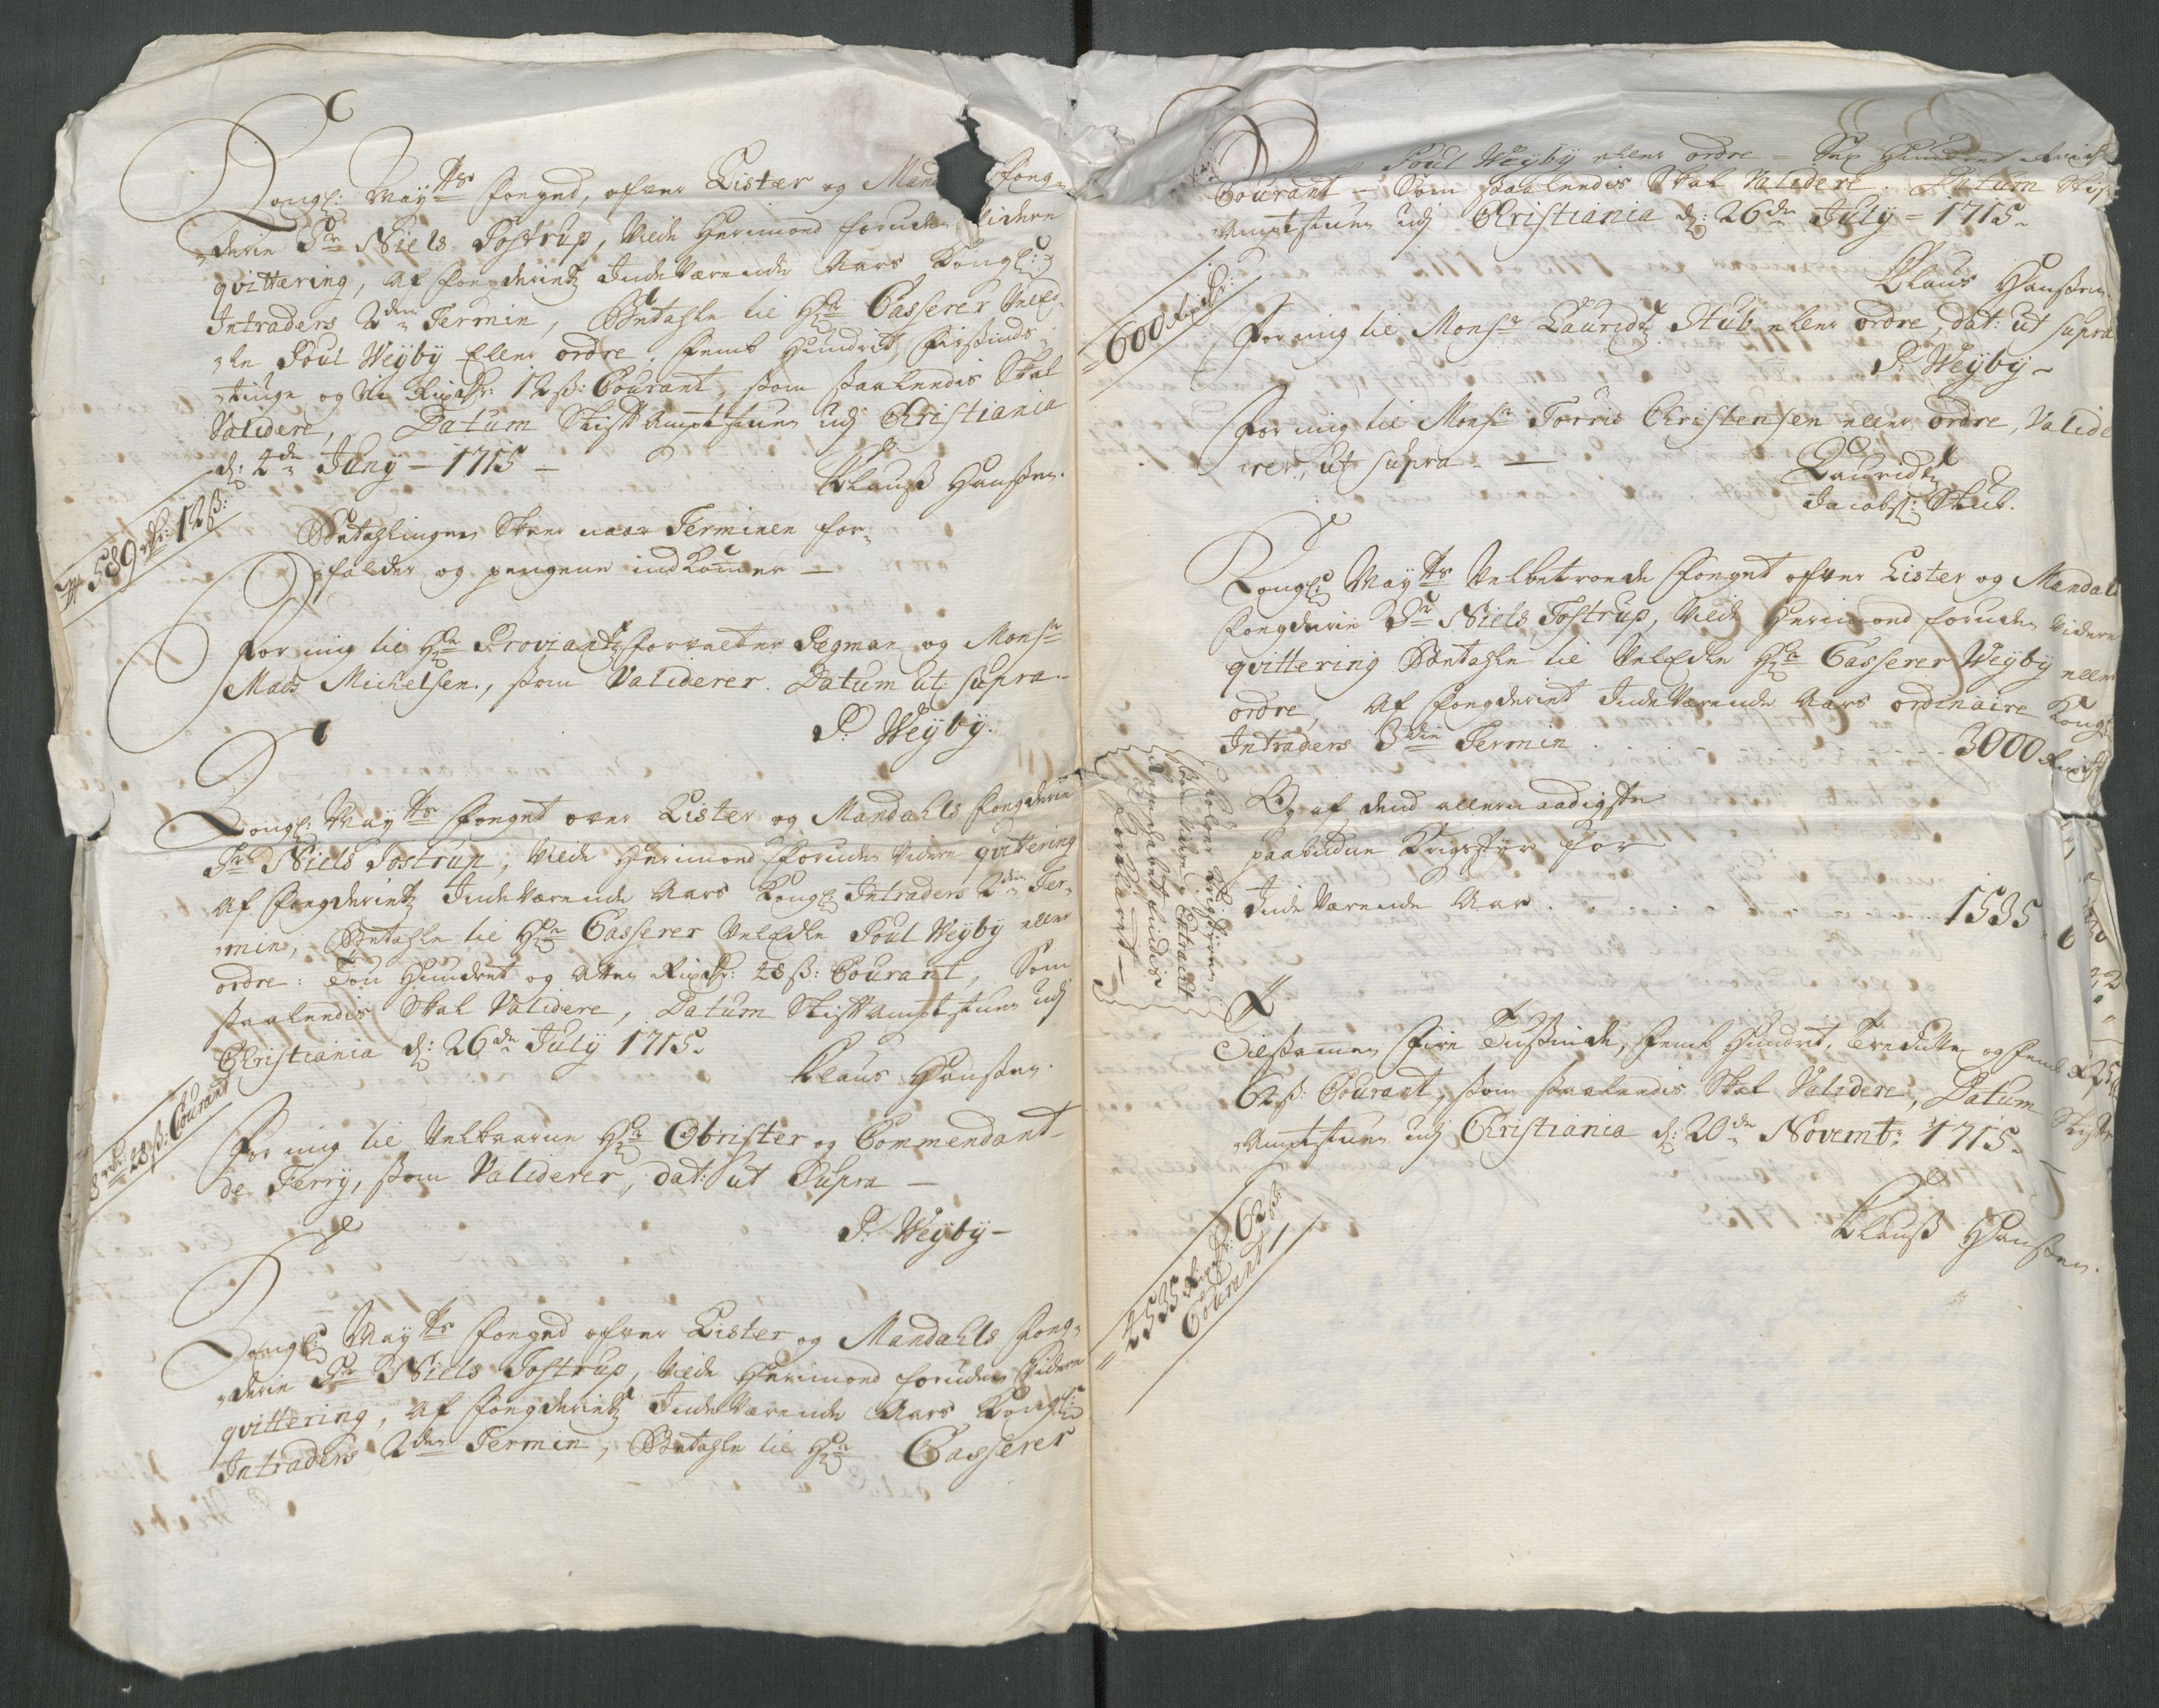 Kongl: May.tts Foged, ofver Lister og Mand Fog-
derie Sr Niels Tostrup, vilde herimod foruden videre
qvittering, af fogderietz Indeværende Aars Kongl:
Intrader 2den Termin, Betahle til Hr Casserer VelEd-
le Poul Weyby Eller ordre, femb Hundrit, Firsinds-
tiuge og Ni Rixdr: 12 ß: Courant, som saaleedis Skal
Validere, Datum Stiftamptstuen udj Christiania
d: 4de Juny - 1715 -
Klauß Hanßen.
589 rdr: 12 ß:
Betahlingen Skeer naar Terminen for-
falder og pengene indkommer -
For mig til Hr Proviantzforvalter Pegman og Monsr
Mads Michelsen, som Validerer. Datum ut supra.
P: Weyby.
Kongl: May.tts Foget over Lister og Mandahls fogderie
Sr Niels Tostrup, vilde herimod foruden videre qvittering
af fogderietz Indeværende Aars Kongl: Intraders 2den Ter-
min, Betahle til Hr Casserer VelEdle Poul Weyby eller
ordre: Tou Hundret og Atten Rixdr: 48 ß: Courant, Som
saaleedis Skal Validere, Datum Stiftamptstuen udj
Christiania d: 26de July 1715.
Klaus Hanßen.
8 rdr: 48 ß: Courant
For mig til Velbaarne Hr Obrister og Commendant
de Ferry, som Validerer, dat: ut Supra -
P: Weyby -
Kongl: May.tts Foged ofver Lister og Mandahls fog-
derie Sr Niels Tostrup, vilde herimod foruden Videre
qvittering, af fogderietz Indeværende Aars Kongl:
Intraders 2den Termin, Betahle til Hr Casserer
Poul Weyby eller ordre = Sex Hundret Rixdr
Courant - Som saaleedis Skal Validere. Datum Stift-
amptstuen udj Christiania d: 26de July = 1715 -
Klaus Hanßen.
600 Rixdr:
For mig til Monsr Lauridtz Stub eller ordre, dat: ut supra
P: Weyby -
For mig til Monsr Torris Christensen eller ordre, Valide-
rer, ut supra -
Lauridtz
Jacobs: Stub.
Kongl: May.tts Velbetroede Foget ofver Lister og Mandal
fogderie Sr Niels Tostrup, vilde herimod foruden videre
qvittering Betahle til VelEdle Hr Casserer Weyby eller
ordre, af fogderiet Indeværende Aars ordinaire Kongl:
Intraders 3die Termin . . . 3000 Rixdr
Og af dend allernaadigste
paabudne Krigsstyr for
Indeværende Aar . . . 1535 . 62
Tilsammen Fire Tusinde, femb Hundret, Tredive og femb Rdr
62 ß: Courant, som saaleedis Skal Validere, Datum Stift-
amptstuen udj Christiania d: 20de Novembr: 1715.
Klauß Hanßen.
4535 Rixdr: 62 ß:
Courant